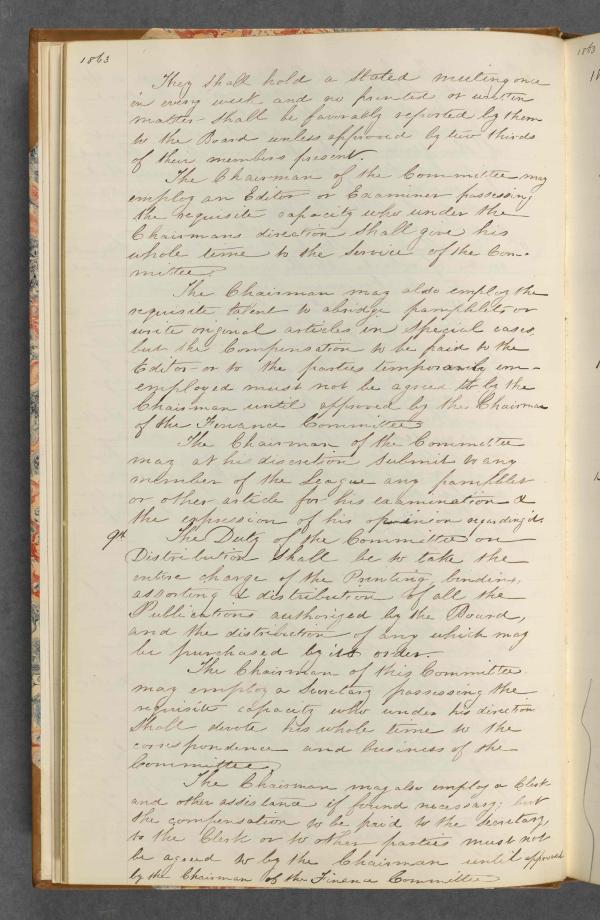 1863
They shall hold a stated meeting once
in every week and no printed or written
matter shall be favorably reported by them
to the Board unless approved by two thirds
of their members present.
The Chairman of the Committee may
employ an Editor or Examiner possessing
the requisite capacity who under the
Chairmans direction shall give his
whole time to the service of the Com-
mittee.
The Chairman may also employ the
requisite talent to abridge pamphlets or
write original articles in special cases
but the Compensation to be paid to the
Editor or to the parties temporarily em-
employed must not be agreed to by the
Chairman until approved by the Chairman
of the Finance Committee
The Chairman of the Committee
may at his discretion submit to any
member of the League any pamphlet
or other article for his examination &
the expression of his opinion regarding it.
9th The Duty of the Committee on
Distribution shall be to take the
entire charge of the Printing, binding,
assorting & distribution of all the
Publications authorized by the Board,
and the distribution of any which may
be purchased by its order.
The Chairman of this Committee
may employ a Secretary possessing the
requisite capacity who under his direction
shall devote his whole time to the
correspondence and business of the
Committee.
The Chairman may also employ a Clerk
and other assistance if found necessary; but
the compensation to be paid to the Secretary,
to the Clerk or to other parties must not
be agreed to by the Chairman until approved
by the Chairman of the Finance Committee
1863